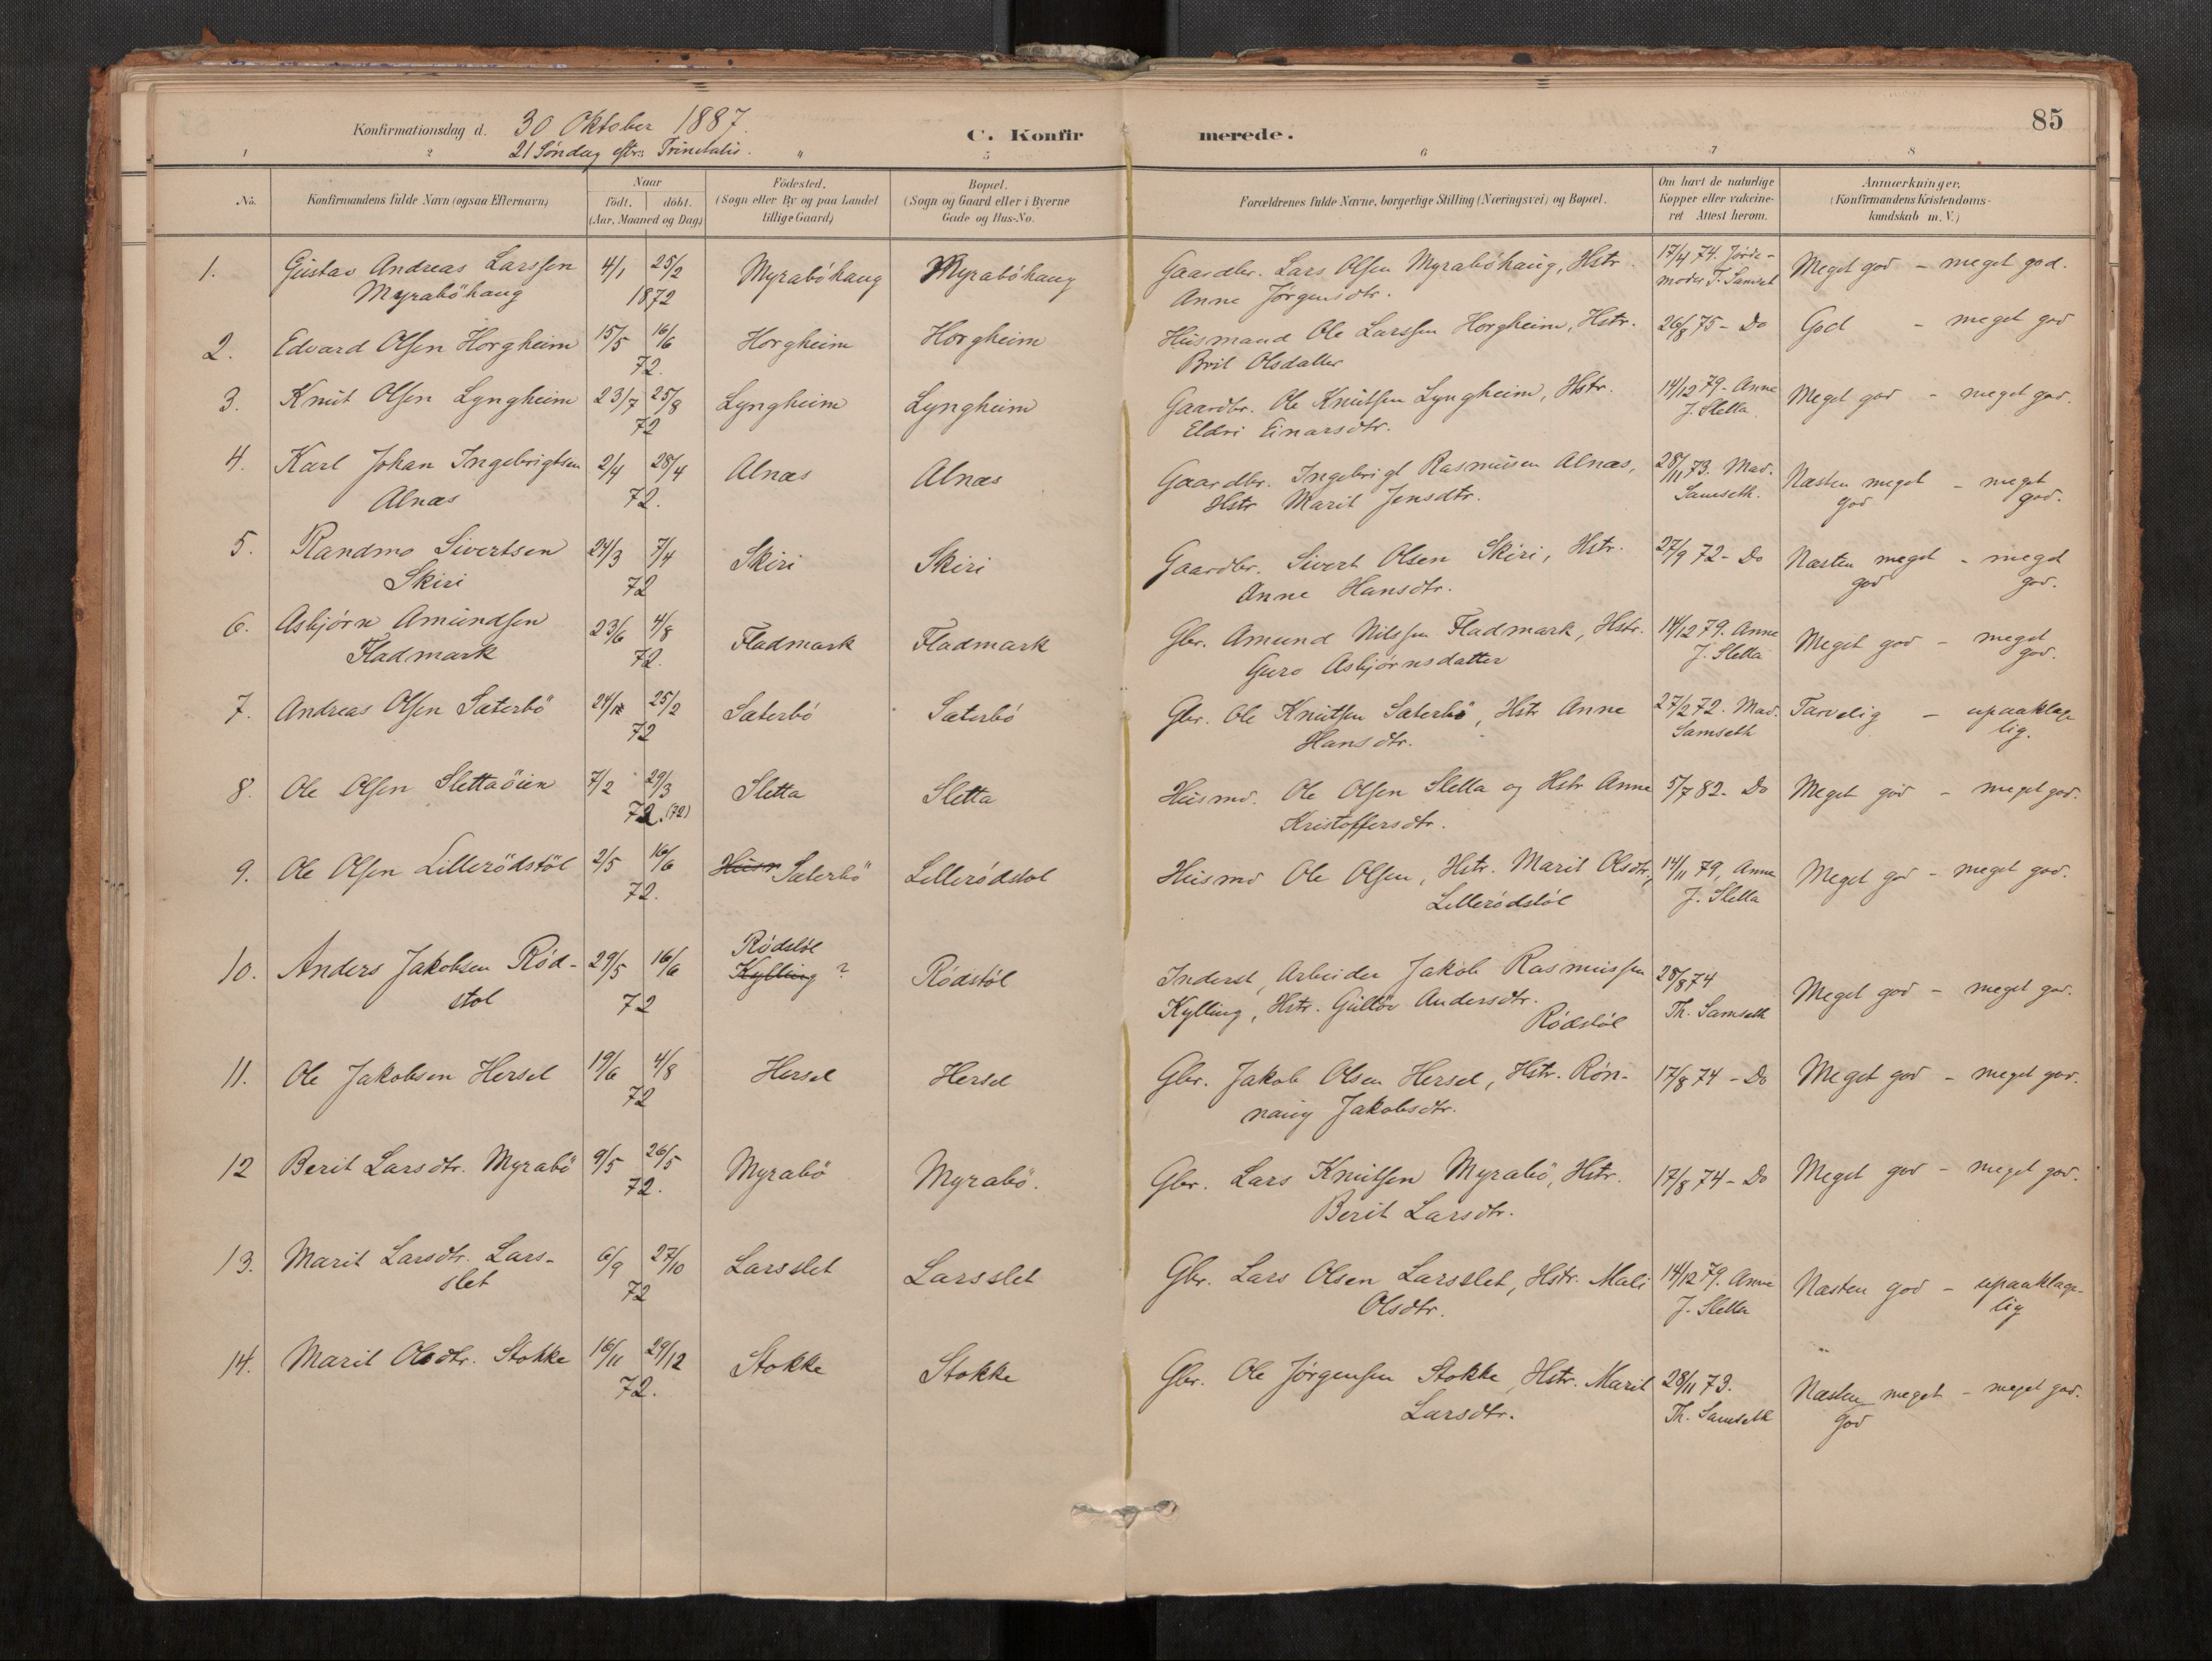 Konfirmationsdag d. 30 Oktober 1887.
21 Söndag eftr. Trinitatis.
C. Konfirmerede.
85
1 2 3 4 5 6 7 8
No.
Konfirmandens fulde Navn (ogsaa Efternavn)
Naar
födt. döbt.
(Aar, Maaned og Dag)
Födested.
(Sogn eller By og paa Landet
tillige Gaard)
Bopæl.
(Sogn og Gaard eller i Byerne
Gade og Hus-No.
Forældrenes fulde Navne, borgerlige Stilling (Næringsvei) og Bopæl.
Om havt de naturlige
Kopper eller vakcine-
ret Attest herom.
Anmærkninger.
(Konfirmandens Kristendoms-
kundskab m. V.)
1. Gustav Andreas Larssen 4/1 25/2 Myraböhaug Myraböhaug Gaardbr. Lars Olsen Myraböhaug, Hstr. 17/4 74. Jorde- Meget god - meget god.
Myraböhaug 1872 Anne Jørgensdtr. moder T. Samset
2. Edvard Olsen Horgheim 15/5 16/6 Horgheim Horgheim Husmand Ole Larssen Horgheim, Hstr. 26/8 75 - Do God - meget god
72. Brit Olsdatter
3. Knut Olsen Lyngheim 23/7 25/8 Lyngheim Lyngheim Gaardbr. Ole Knutsen Lyngheim, Hstr. 14/12 79. Anne Meget god - meget god.
72 Eldri Einarsdtr. J. Sletta
4. Karl Johan Ingebrigtsen 2/4 28/4 Alnæs Alnæs Gaardbr. Ingebrigt Rasmusen Alnæs, 28/11 73. Mad. Næsten meget - meget
Alnæs 72. Hstr Marit Jensdtr. Samseth. god god.
5. Randmo Sivertsen 24/3 7/4 Skiri Skiri Gaardbr. Sivert Olsen Skiri, Hstr. 27/9 72 - Do Næsten meget - meget
Skiri 72 Anne Hansdtr. god god.
6. Asbjörn Amundsen 23/6 4/8 Fladmark Fladmark Gbr. Amund Nilssen Fladmark, Hstr. 14/12 79. Anne Meget god - meget
Fladmark 72. Guro Asbjørnsdatter J. Sletta god.
7. Andreas Olsen Sæterbö 24/12 25/2 Sæterbö Sæterbö Gbr. Ole Knutsen Sæterbö, Hstr Anne 27/2 72. Mad. Tarvelig - upaaklage
72 Hansdtr. Samseth lig.
8. Ole Olsen Slettaöien 7/2 29/3 Sletta Sletta Husmd. Ole Olsen Sletta og Hstr Anne 5/7 82 - Do Meget god - meget god.
72. (72) Kristoffersdtr.
9. Ole Olsen Lillerödstöl 2/5 16/6 Husm Sæterbö Lillerödstöl Husmd Ole Olsen, Hstr. Marit Olsdtr., 14/11 79, Anne Meget god - meget god.
72. Lillerödstöl J. Sletta
10. Anders Jakobsen Röd- 29/5 16/6 Rödstöl Rödstöl Inderst, Arbeider Jakob Rasmussen 28/8 74 Meget god - meget god.
stol 72 Kylling ? Kylling, Hstr. Gullöv Andersdtr. Th. Samseth
Rödstöl
11. Ole Jakobsen Hersel 19/6 4/8 Hersel Hersel Gbr. Jakob Olsen Hersel, Hstr. Rön- 17/8 74 - Do Meget god - meget god.
72 naug Jakobsdtr.
12 Berit Larsdtr. Myrabö 9/5 26/5 Myrabö Myrabö. Gbr. Lars Knutsen Myrabö, Hstr. 17/8 74 - Do Meget god - meget god.
72. Berit Larsdtr.
13. Marit Larsdtr. Lars- 6/9 27/10 Larsslet Larsslet Gbr. Lars Olsen Larsslet, Hstr. Mali 14/12 79. Anne Næsten god - upaaklage-
slet 72 Olsdtr. J. Sletta lig
14. Marit Olsdtr. Stokke 16/11 29/12 Stokke Stokke Gbr. Ole Jørgensen Stokke, Hstr. Marit 28/11 73. Næsten meget - meget god.
72. Larsdtr. Th. Samseth god